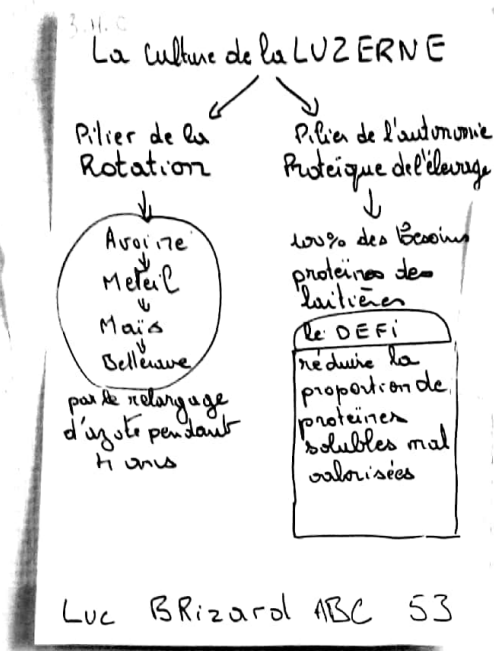 La culture de la LUZERNE
Pilier de la
Rotation
Avoine
Meteil
Maïs
Betterave
par le relargage
d'azote pendant
4 ans
Pilier de l'autonomie
Proteique de l'élevage
100% des Besoins
proteines des
laitières
le DEFi
réduire la
proportion de
protéines
solubles mal
valorisées
Luc BRizard ABC 53